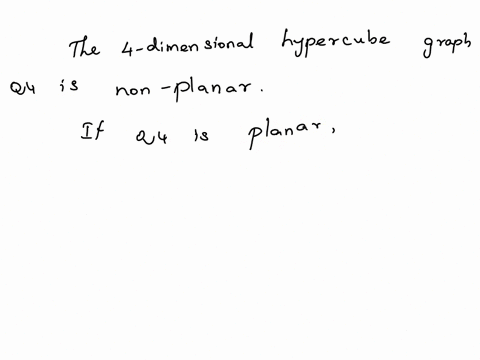 The 4-dimensional hypercube graph
Q4 is non-planar.
If Q4 is planar,